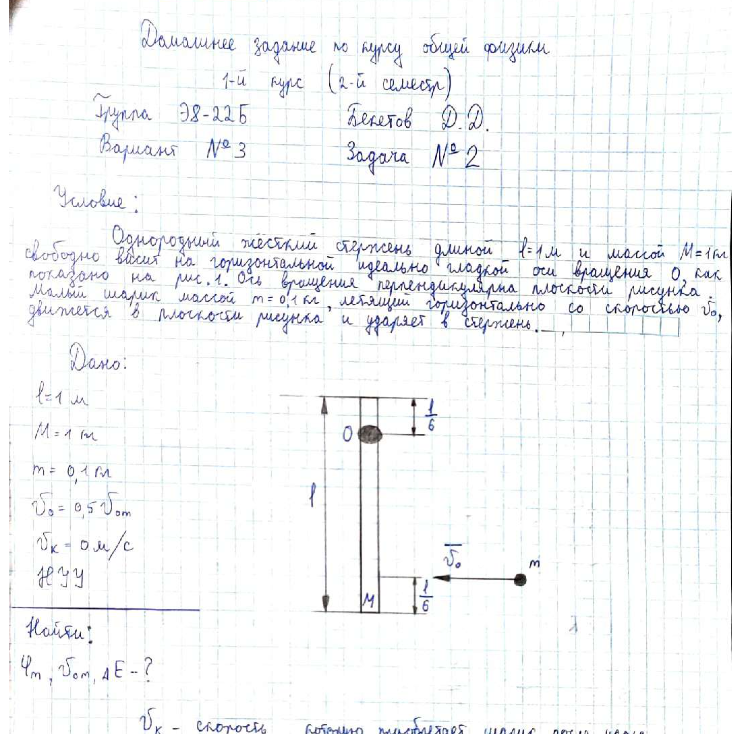 Домашнее задание по курсу общей физики
1-й курс (2-й семестр)
Группа Э8-22Б Бекетов Д.Д.
Вариант №3 Задача №2
Условие:
Однородный жёсткий стержень длиной l=1м и массой M=1кг
свободно висит на горизонтальной идеально гладкой оси вращения O, как
показано на рис. 1. Ось вращения перпендикулярна плоскости рисунка.
Малый шарик массой m=0,1 кг, летящий горизонтально со скоростью v̄₀,
движется в плоскости рисунка и ударяет в стержень.
Дано:
l=1 м
M=1 кг
m=0,1 кг
v₀=0,5 v₀m
vк=0 м/с
НУУ
Найти:
φm, v₀m, ΔE-?
l/6
O
l
v̄₀
m
M
l/6
vк - скорость, которую приобретает шарик после